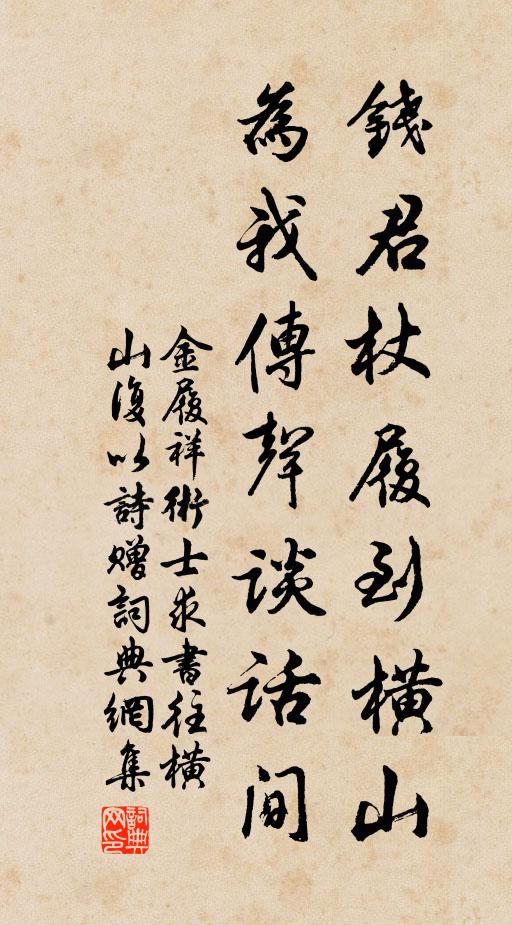 錢君杖履到橫山
為我傳聲談話間
金履祥術士求書往橫
山復以詩贈詞典網集
詞典
网印